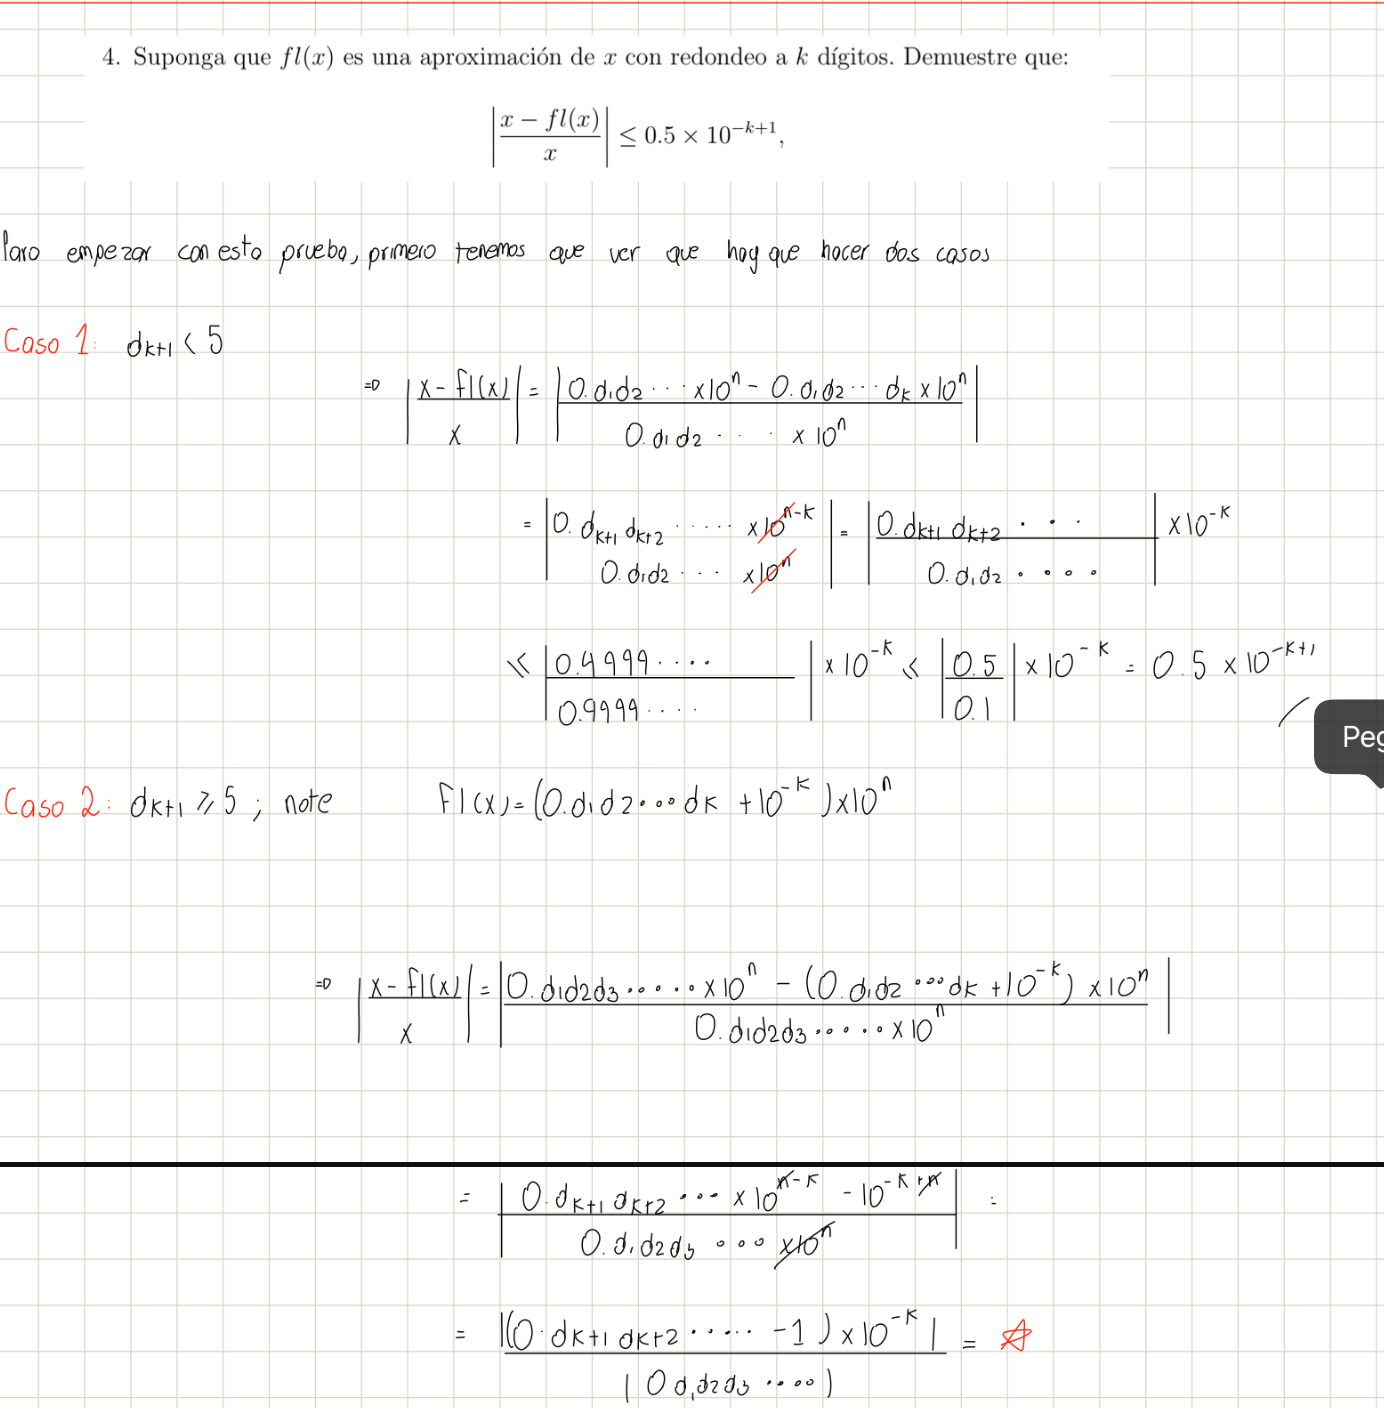 4. Suponga que fl(x) es una aproximación de x con redondeo a k dígitos. Demuestre que:
|x − fl(x) / x| ≤ 0.5 × 10^{−k+1},
Para empezar con esta prueba, primero tenemos que ver que hay que hacer dos casos
Caso 1: d_{k+1} < 5
⇒ |x − fl(x) / x| = |0.d_1d_2··· ×10^n − 0.d_1d_2···d_k ×10^n / 0.d_1d_2··· ×10^n|
= |0.d_{k+1}d_{k+2}····· ×10^{n−k} / 0.d_1d_2··· ×10^n| = |0.d_{k+1}d_{k+2}··· / 0.d_1d_2····| ×10^{−k}
≤ |0.4999···· / 0.9999····| ×10^{−k} < |0.5 / 0.1| ×10^{−k} = 0.5 ×10^{−k+1}
Peg
Caso 2: d_{k+1} ≥ 5 ; note fl(x) = (0.d_1d_2···d_k + 10^{−k}) ×10^n
⇒ |x − fl(x) / x| = |0.d_1d_2d_3····· ×10^n − (0.d_1d_2···d_k + 10^{−k}) ×10^n / 0.d_1d_2d_3····· ×10^n|
= |0.d_{k+1}d_{k+2}··· ×10^{n−k} − 10^{−k+n} / 0.d_1d_2d_3··· ×10^n| =
= |(0.d_{k+1}d_{k+2}····· −1) ×10^{−k}| / |0d_1d_2d_3····| = ☆